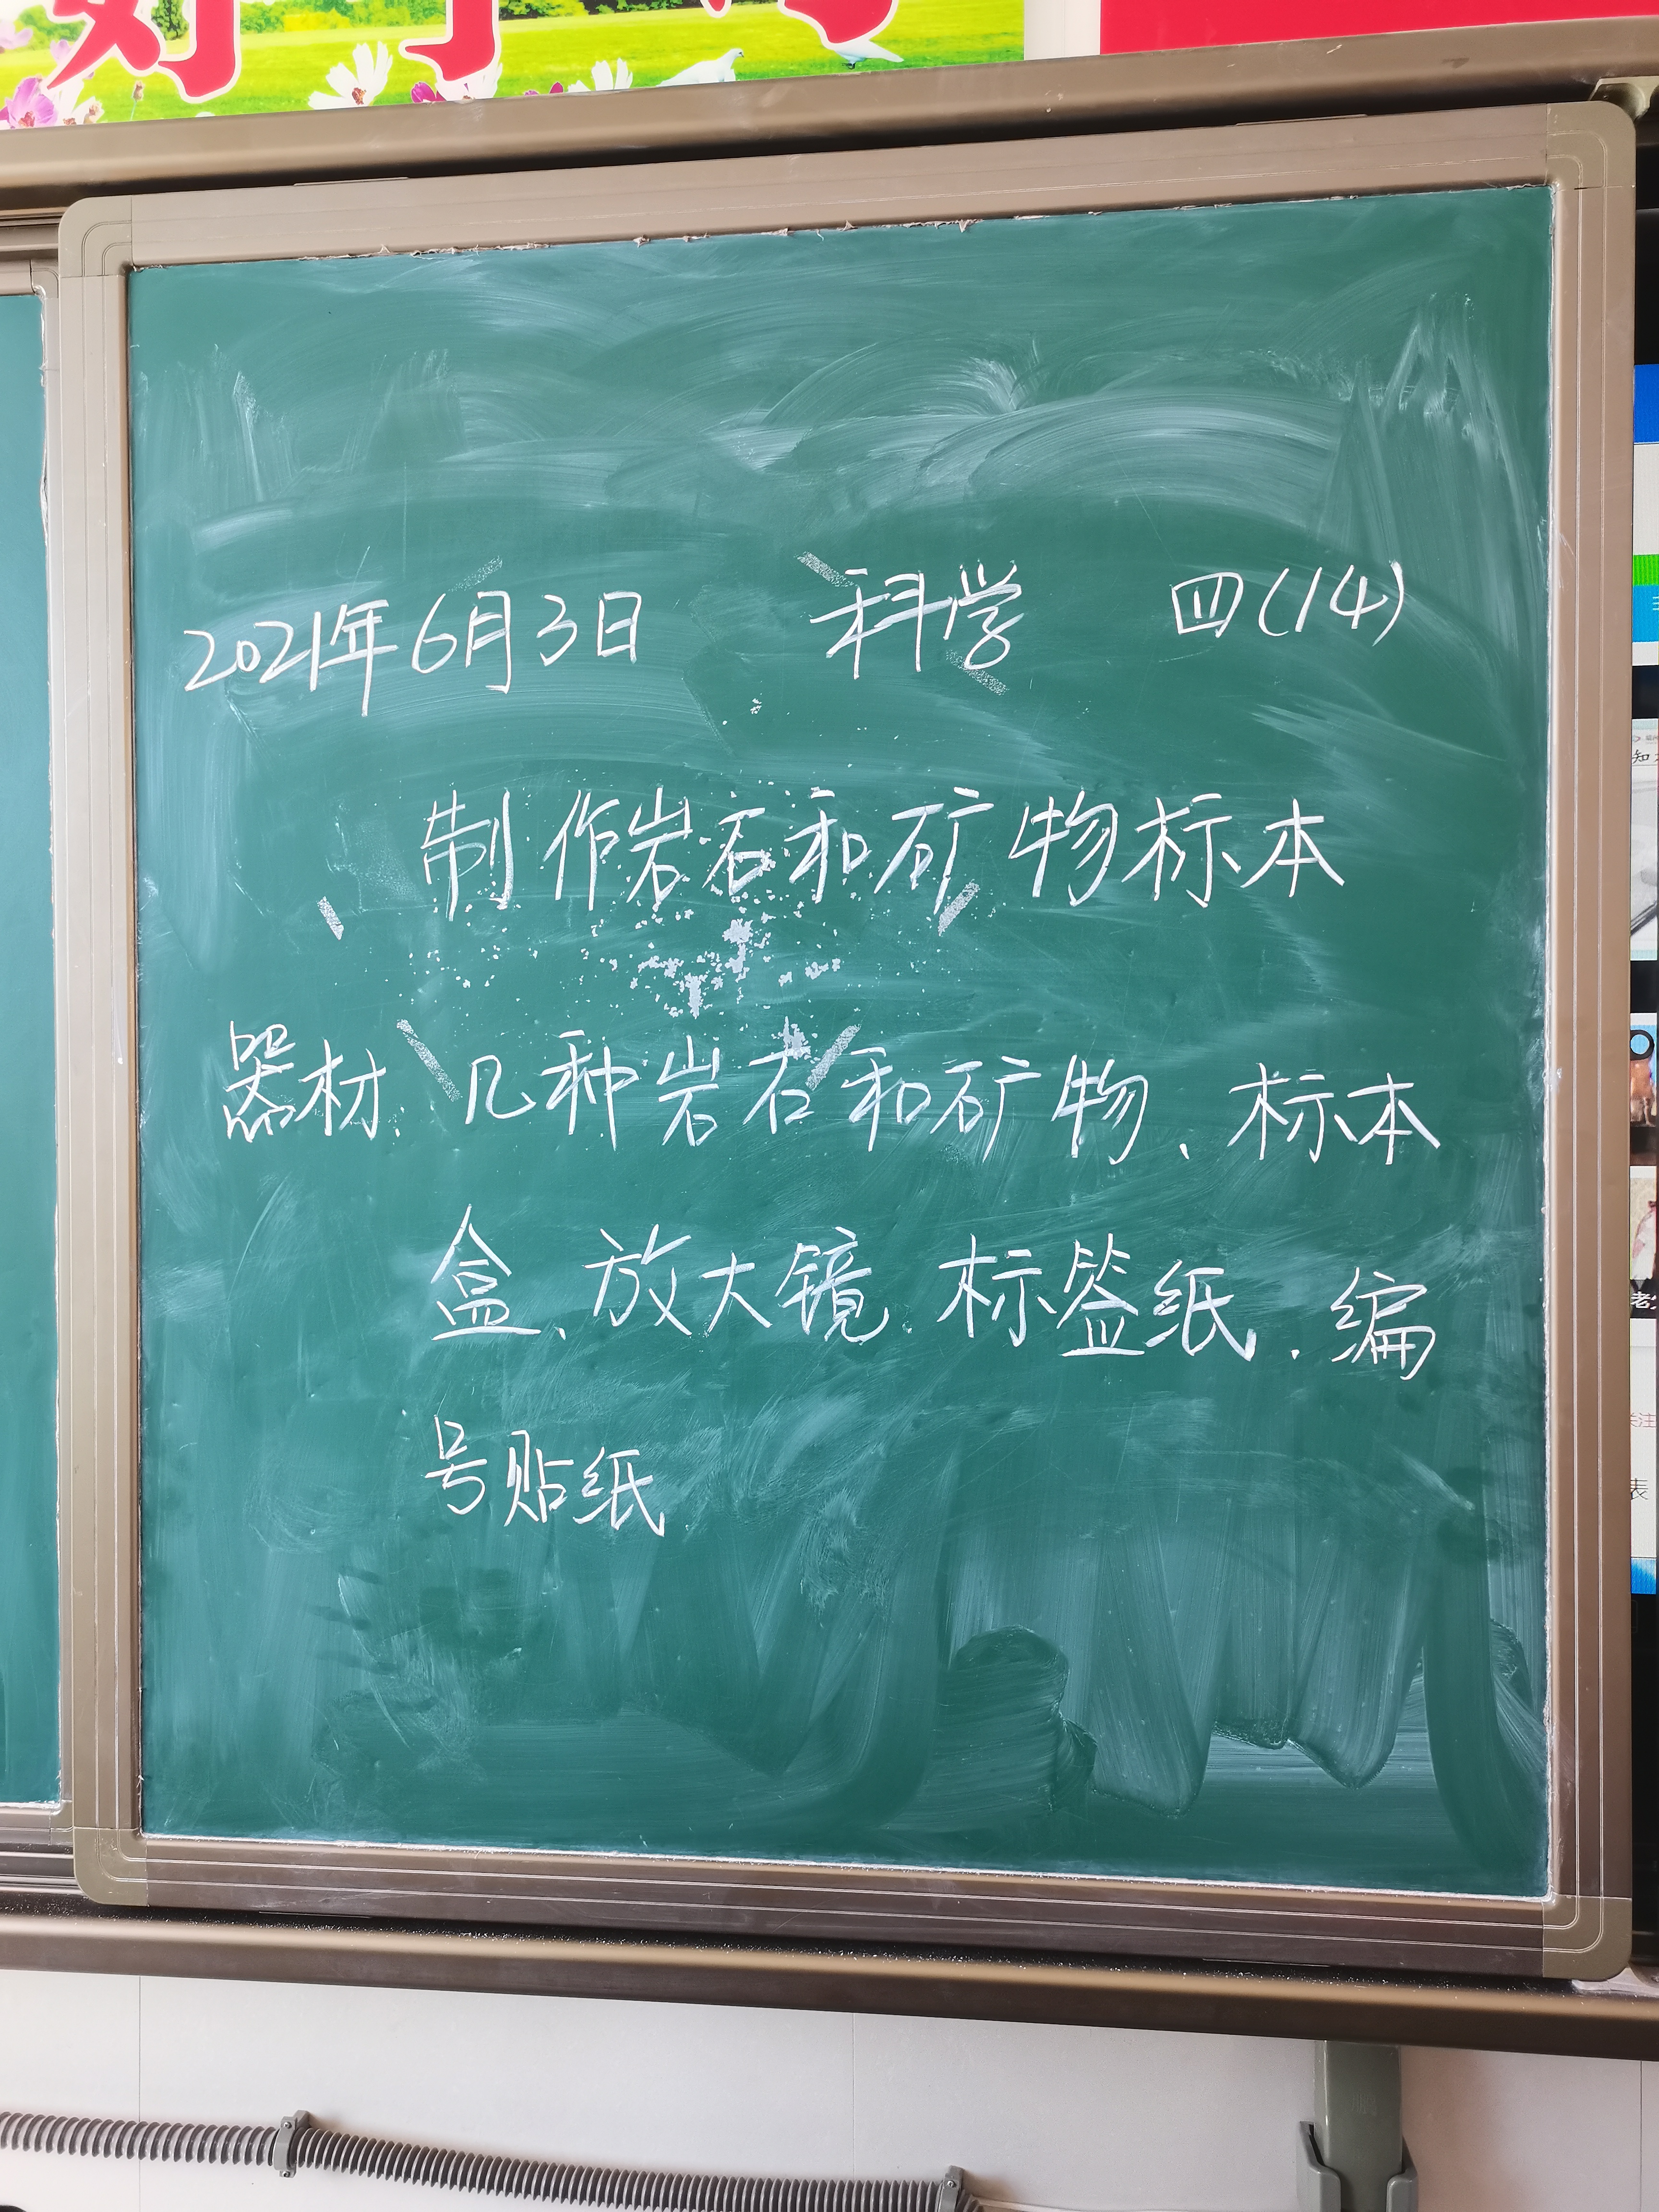 2021年6月3日 科学 四(14)
制作岩石和矿物标本
器材: 几种岩石和矿物、标本
盒、放大镜、标签纸、编
号贴纸